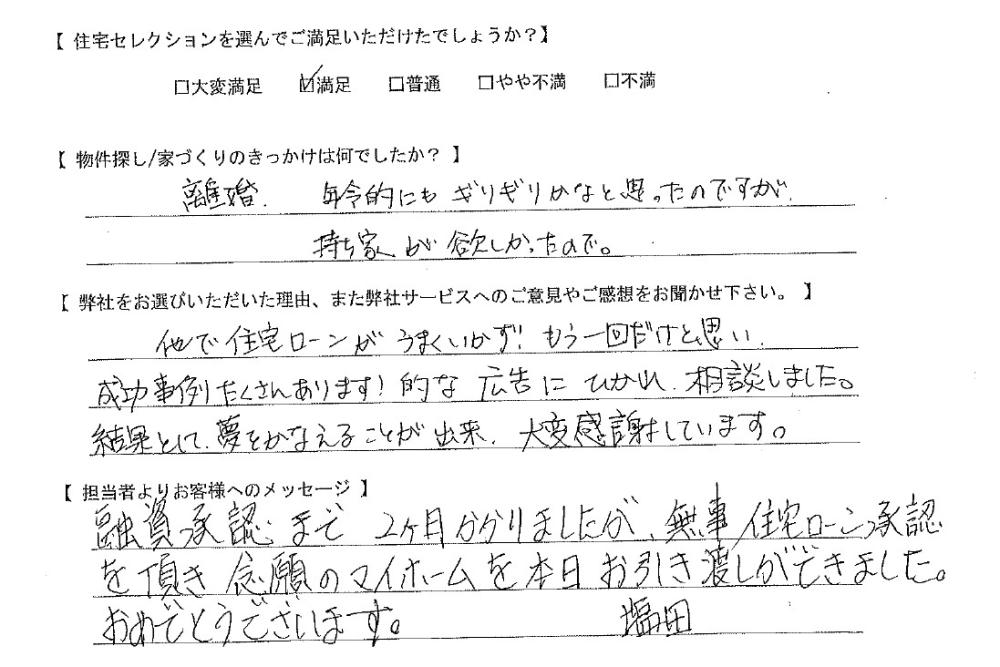 【 住宅セレクションを選んでご満足いただけたでしょうか?】
□大変満足 ☑満足 □普通 □やや不満 □不満
【 物件探し/家づくりのきっかけは何でしたか? 】
離婚. 年令的にも ギリギリかなと思ったのですが.
持ち家が欲しかったので。
【 弊社をお選びいただいた理由、また弊社サービスへのご意見やご感想をお聞かせ下さい。 】
他で住宅ローンが うまくいかず! もう一回だけと思い.
成功事例たくさんあります! 的な 広告に ひかれ. 相談しました。
結果として. 夢をかなえることが出来. 大変感謝しています。
【 担当者よりお客様へのメッセージ 】
融資承認まで 2ヶ月かかりましたが、無事住宅ローン承認
を頂き 念願のマイホームを本日お引き渡しができました。
おめでとうございます。 塩田